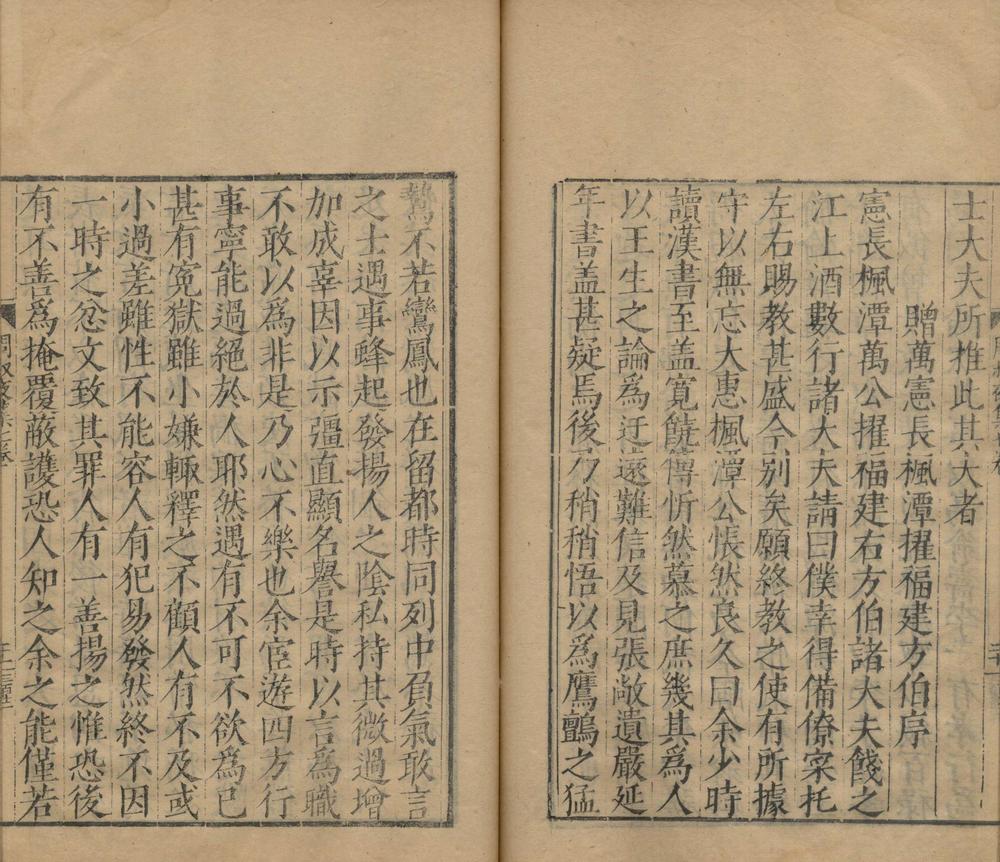 士大夫所推此其大者
贈萬憲長楓潭擢福建方伯序
憲長楓潭萬公擢福建右方伯諸大夫餞之
江上酒數行諸大夫請曰僕幸得備僚寀托
左右賜教甚盛今別矣願終教之使有所據
守以無忘大惠楓潭公悵然良久曰余少時
讀漢書至盖寬饒傳忻然慕之庶幾其為人
以王生之論為迂遠難信及見張敞遺嚴延
年書盖甚疑焉後乃稍稍悟以為鷹鸇之猛
鷙不若鸞鳳也在留都時同列中負氣敢言
之士遇事蜂起發揚人之陰私持其微過增
加成辜因以示彊直顯名譽是時以言為職
不敢以為非是乃心不樂也余宦遊四方行
事寧能過絕於人耶然遇有不可不欲為已
甚有寃獄雖小嫌輙釋之不顧人有不及或
小過差雖性不能容人有犯易發然終不因
一時之忿文致其罪人有一善揚之惟恐後
有不善為掩覆蔽護恐人知之余之能僅若